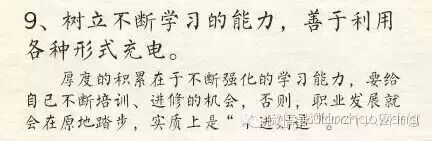 9、树立不断学习的能力，善于利用
各种形式充电。
厚度的积累在于不断强化的学习能力，要给
自己不断培训、进修的机会，否则，职业发展就
会在原地踏步，实质上是“不进则退”。